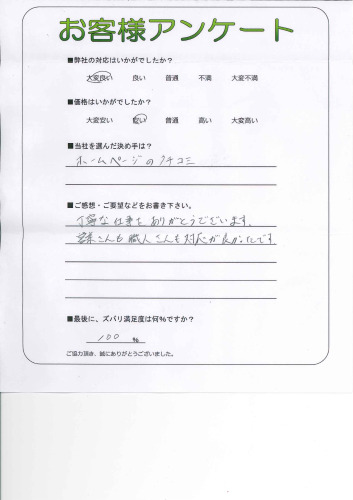 お客様アンケート
■弊社の対応はいかがでしたか?
大変良い 良い 普通 不満 大変不満
■価格はいかがでしたか?
大変安い 安い 普通 高い 大変高い
■当社を選んだ決め手は?
ホームページの クチコミ
■ご感想・ご要望などをお書き下さい。
丁寧な仕事を ありがとうございます。
営業さんも 職人さんも 対応が良かったです
■最後に、ズバリ満足度は何%ですか?
100 %
ご協力頂き、誠にありがとうございました。